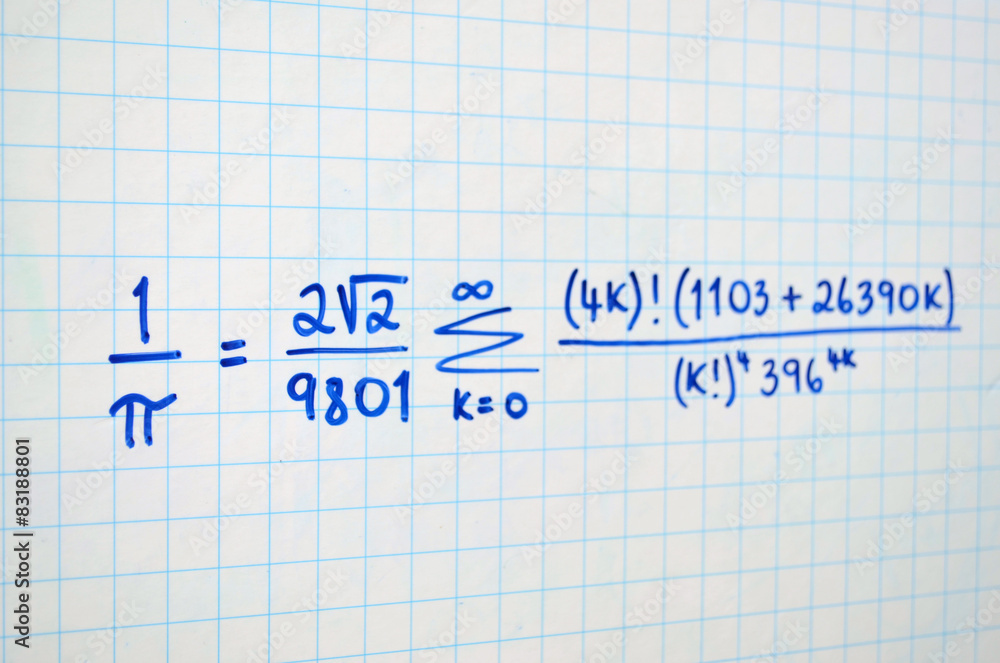 1/π = 2√2/9801 ∞∑k=0 (4k)!(1103+26390k)/(k!)⁴396⁴ᵏ
Adobe Stock | #83188801